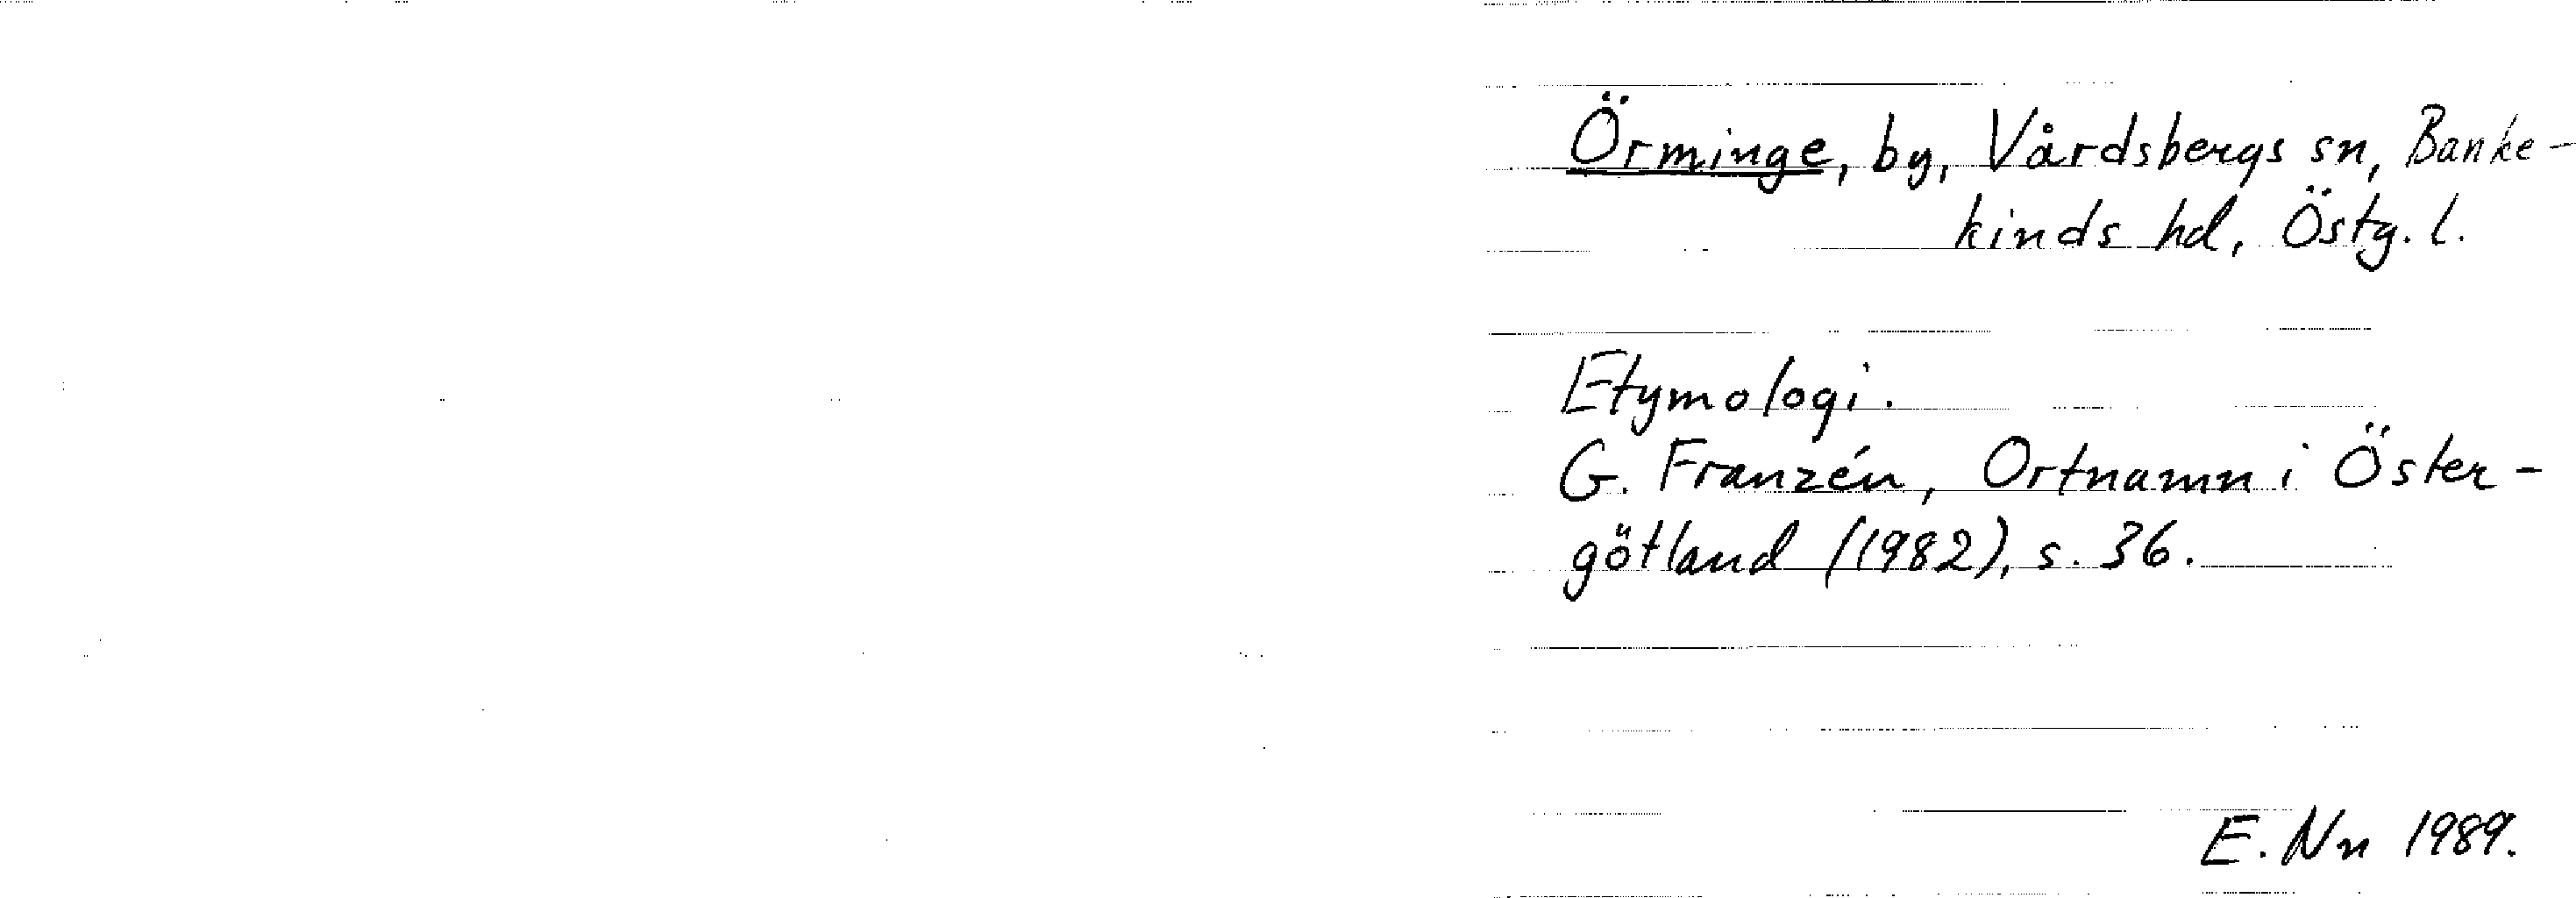 Örminge, by, Vårdsbergs sn, Banke-
kinds hd, Östg. l.
Etymologi.
G. Franzén, Ortnamn i Öster-
götland (1982), s. 36.
E. Nn 1989.